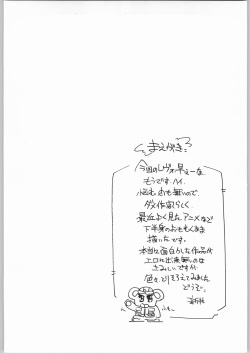 まえがき
今回のレヴォ早えーな
もうです。ハイ。
悩む 間も無いので、
ダメ作家らしく
最近よく見たアニメなど
下半身のおもむくまま
描いたかす。
本当に面白かった作品が
エロが出来無いのは
さみしいですが
色々とりそろえてみました
どうぞ。